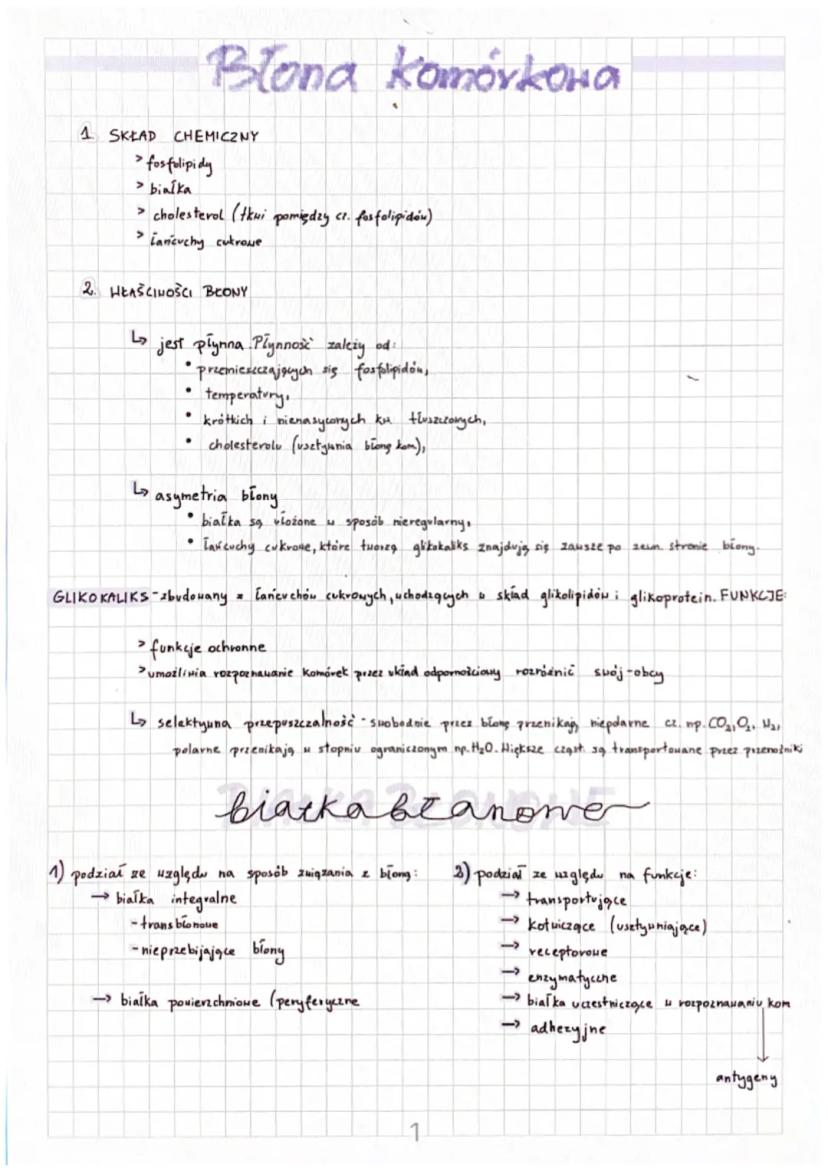 Błona komórkowa
1. SKŁAD CHEMICZNY
> fosfolipidy
> białka
> cholesterol (tkwi pomiędzy cz. fosfolipidów)
> łańcuchy cukrowe
2. WŁAŚCIWOŚCI BŁONY
↳ jest płynna. Płynność zależy od:
• przemieszczających się fosfolipidów,
• temperatury,
• krótkich i nienasyconych kw tłuszczowych,
• cholesterolu (usztywnia błonę kom),
↳ asymetria błony
• białka są ułożone w sposób nieregularny,
• łańcuchy cukrowe, które tworzą glikokaliks znajdują się zawsze po zewn. stronie błony.
GLIKOKALIKS - zbudowany z łańcuchów cukrowych, wchodzących w skład glikolipidów i glikoprotein. FUNKCJE:
> funkcje ochronne
> umożliwia rozpoznawanie komórek przez układ odpornościowy rozróżnić swój-obcy
↳ selektywna przepuszczalność - swobodnie przez błonę przenikają niepolarne cz. np. CO₂, O₂, N₂,
polarne przenikają w stopniu ograniczonym np. H₂O. Większe cząst. są transportowane przez przenośniki
BIAŁKA BŁONOWE
białka błonowe
1) podział ze względu na sposób związania z błoną:
→ białka integralne
- transbłonowe
- nieprzebijające błony
→ białka powierzchniowe (peryferyczne
2) podział ze względu na funkcje:
→ transportujące
→ kotwiczące (usztywniające)
→ receptorowe
→ enzymatyczne
→ białka uczestniczące w rozpoznawaniu kom
→ adhezyjne
antygeny
1